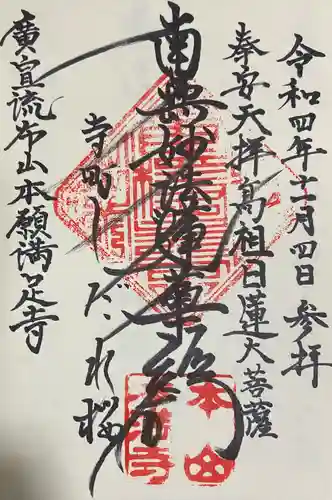 令和四年十二月四日 参拝
奉安天拝高祖日蓮大菩薩
南無妙法蓮華経
寺町しだれ桜
廣宣流布山本願満足寺
本山
本満寺